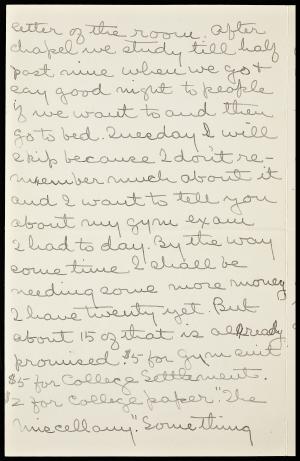 etter of the room. After
chapel we study till half
past nine when we go &
say good night to people
if we want to and then
go to bed. Tuesday I will
skip because I don't re-
member much about it
and I want to tell you
about my gym exam
I had to day. By the way
some time I shall be
needing some more money
I have twenty yet. But
about 15 of that is already
promised. $5 for gym suit
$5 for College Settlements.
$2 for College paper "The
Miscellany." Something